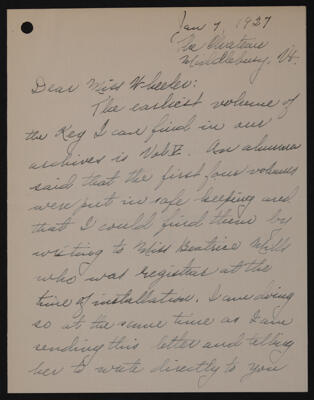 Jan 7, 1927
The Chateau
Middlebury, Vt.
Dear Miss Wheeler:
The earliest volume of
the Key I can find in our
archives is Vol V. An alumna
said that the first four volumes
were put in safe keeping and
that I could find them by
writing to Miss Beatrice Mills
who was registrar at the
time of installation. I am doing
so at the same time as I am
sending this letter and telling
her to write directly to you